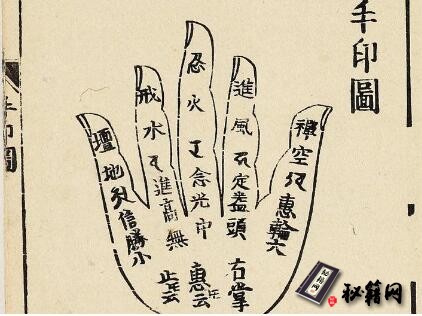 手印圖
禪空惠輪六
進風定蓋頭右掌
忍火念光中惠云
戒水進高無
壇地信勝小
手印圖
秘籍网